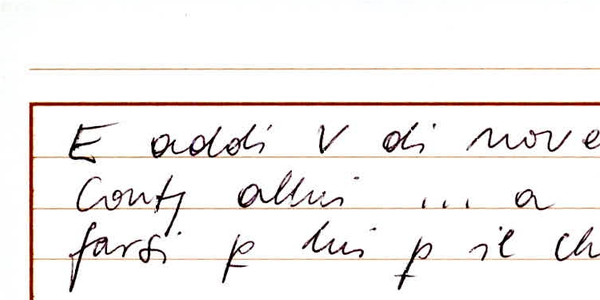 E addi V di nove
Contj allui ... a
farsi p lui p il ch